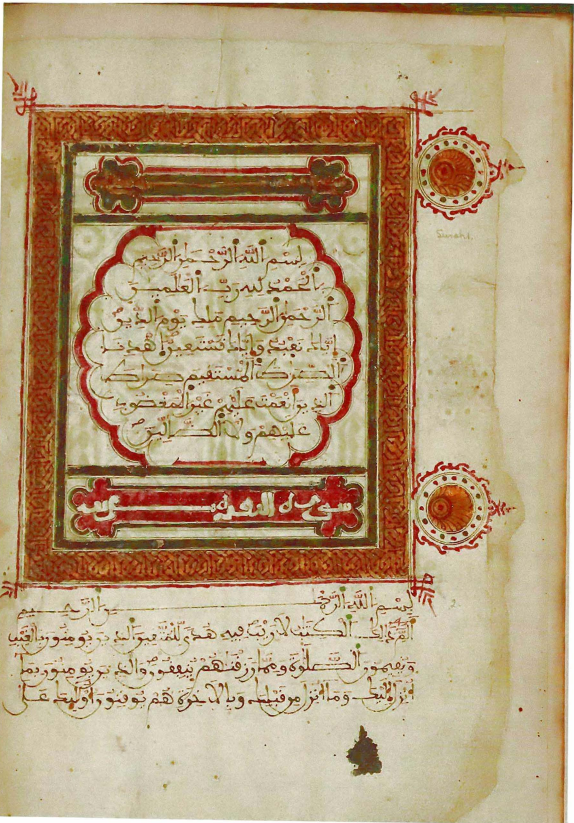 بسم الله الرحمن الرحيم
الحمد لله رب العلمين
الرحمن الرحيم ملك يوم الدين
إياك نعبد وإياك نستعين اهدنا
الصراط المستقيم صراط
الذين أنعمت عليهم غير المغضوب
عليهم ولا الضالين
Surah 1.
سورة البقرة
بسم الله الرحمن الرحيم
2
الم ذلك الكتب لا ريب فيه هدى للمتقين الذين يومنون بالغيب
ويقيمون الصلوة ومما رزقنهم ينفقون والذين يومنون بما
أنزل إليك وما أنزل من قبلك وبالاخرة هم يوقنون أوليك على